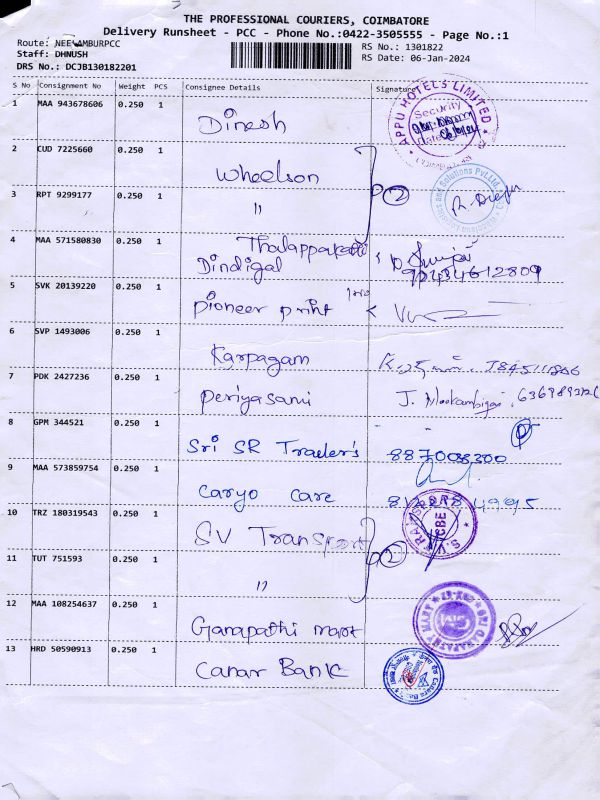 THE PROFESSIONAL COURIERS, COIMBATORE
Delivery Runsheet - PCC - Phone No.:0422-3505555 - Page No.:1
Route: NEELAMBURPCC
RS No.: 1301822
Staff: DHNUSH
RS Date: 06-Jan-2024
DRS No.: DCJB130182201
S No Consignment No Weight PCS Consignee Details Signature
1 MAA 943678606 0.250 1 Dinesh
APPU HOTELS LIMITED
Security
2 CUD 7225660 0.250 1 Wheelson
3 RPT 9299177 0.250 1 " 2
4 MAA 571580830 0.250 1 Thalappakatti
Dindigal 90434612809
5 SVK 20139220 0.250 1 Pioneer print
6 SVP 1493006 0.250 1 Karpagam
7 PDK 2427236 0.250 1 periyasami J. Mookambigai
8 GPM 344521 0.250 1 Sri SR Trader's 887008300
9 MAA 573859754 0.250 1 Caryo Care
10 TRZ 180319543 0.250 1 SV Transport S.V. TRANSPORT CBE
11 TUT 751593 0.250 1 " 2
12 MAA 108254637 0.250 1 Ganapathi mart SRI GANAPATHY MART
13 HRD 50590913 0.250 1 Canar Bank